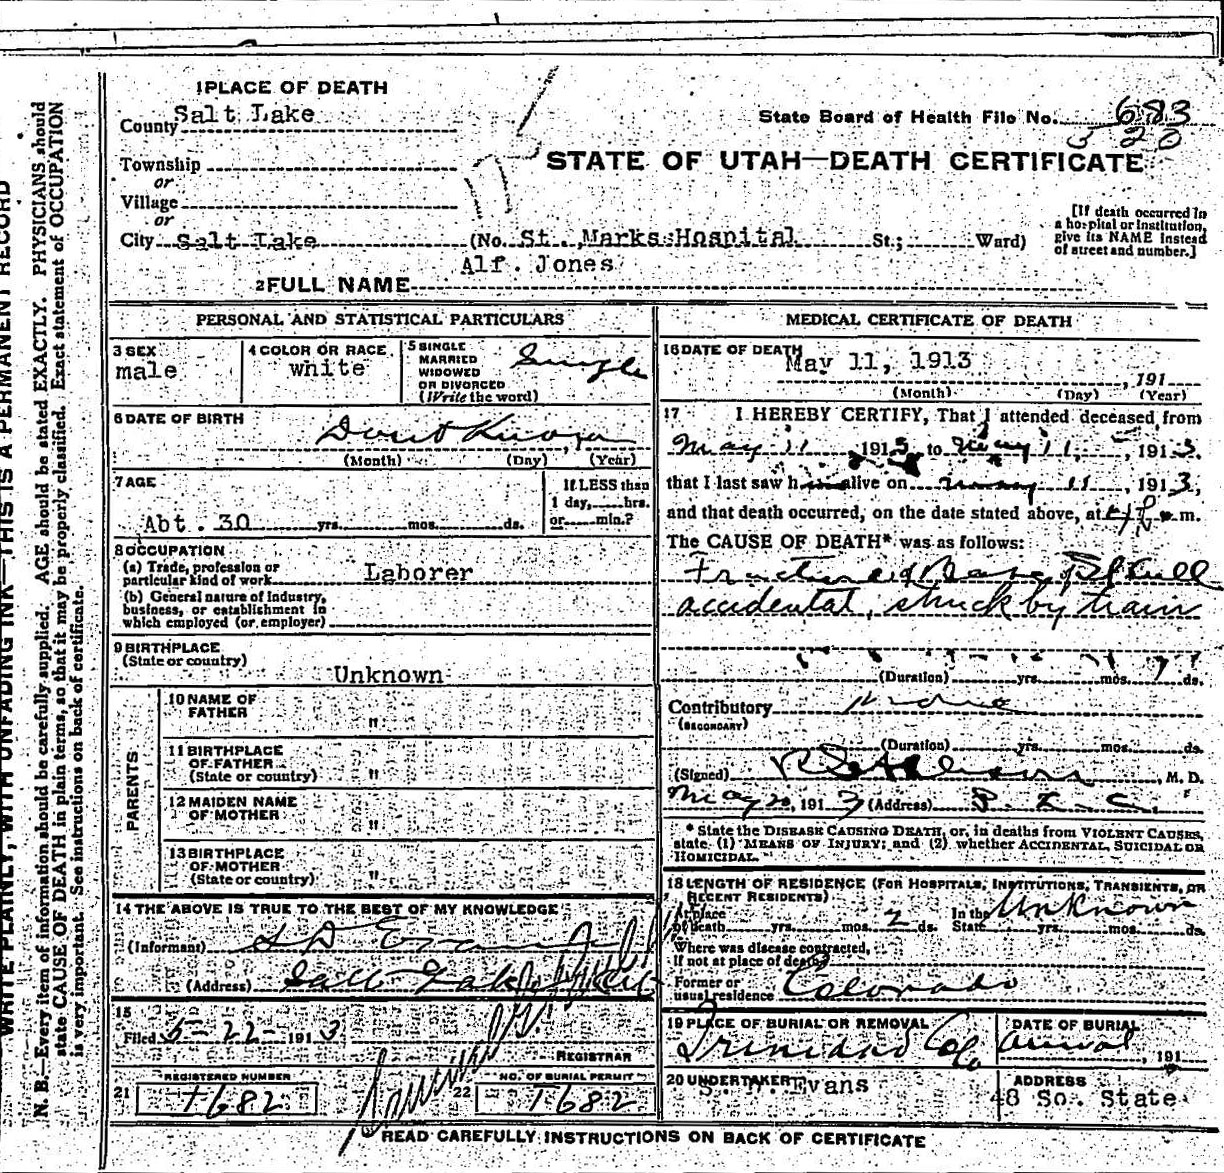 1 PLACE OF DEATH
County Salt Lake
State Board of Health File No. 683
320
Township
or
Village
or
City Salt Lake (No. St. Marks Hospital St.; Ward)
STATE OF UTAH—DEATH CERTIFICATE
[If death occurred in a hospital or institution, give its NAME instead of street and number.]
2 FULL NAME Alf. Jones
WRITE PLAINLY, WITH UNFADING INK—THIS IS A PERMANENT RECORD
N. B.—Every item of information should be carefully supplied. AGE should be stated EXACTLY. PHYSICIANS should
state CAUSE OF DEATH in plain terms, so that it may be properly classified. Exact statement of OCCUPATION
is very important. See instructions on back of certificate.
PERSONAL AND STATISTICAL PARTICULARS
3 SEX
male
4 COLOR OR RACE
white
5 SINGLE
MARRIED
WIDOWED
OR DIVORCED
(Write the word)
Single
6 DATE OF BIRTH
Dont Know
(Month) (Day) (Year)
7 AGE
Abt. 30 yrs. mos. ds.
If LESS than
1 day, hrs.
or min.?
8 OCCUPATION
(a) Trade, profession or
particular kind of work Laborer
(b) General nature of industry,
business, or establishment in
which employed (or employer)
9 BIRTHPLACE
(State or country)
Unknown
PARENTS
10 NAME OF
FATHER "
11 BIRTHPLACE
OF FATHER
(State or country) "
12 MAIDEN NAME
OF MOTHER "
13 BIRTHPLACE
OF MOTHER
(State or country) "
14 THE ABOVE IS TRUE TO THE BEST OF MY KNOWLEDGE
(Informant) S D Evans
(Address) Salt Lake
15
Filed 5-22- 1913
REGISTRAR
21 REGISTERED NUMBER
T682
22 NO. OF BURIAL PERMIT
T682
MEDICAL CERTIFICATE OF DEATH
16 DATE OF DEATH
May 11, 1913
, 191
(Month) (Day) (Year)
17 I HEREBY CERTIFY, That I attended deceased from
May 11, 1913 to May 11, 1913.
that I last saw him alive on May 11, 1913,
and that death occurred, on the date stated above, at m.
The CAUSE OF DEATH* was as follows:
Fracture of Base of Skull
accidental, struck by train
(Duration) yrs. mos. ds.
Contributory None
(SECONDARY)
(Duration) yrs. mos. ds.
(Signed) , M. D.
May 20, 1913 (Address) S. L. C.
* State the DISEASE CAUSING DEATH, or, in deaths from VIOLENT CAUSES,
state (1) MEANS OF INJURY; and (2) whether ACCIDENTAL, SUICIDAL OR
HOMICIDAL.
18 LENGTH OF RESIDENCE (FOR HOSPITALS, INSTITUTIONS, TRANSIENTS, OR
RECENT RESIDENTS)
At place
of death yrs. mos. 2 ds.
In the
State Unknown yrs. mos. ds.
Where was disease contracted,
If not at place of death?
Former or
usual residence Colorado
19 PLACE OF BURIAL OR REMOVAL
Trinidad Colo
DATE OF BURIAL
arrival , 191
20 UNDERTAKER
S. D. Evans
ADDRESS
48 So. State
READ CAREFULLY INSTRUCTIONS ON BACK OF CERTIFICATE